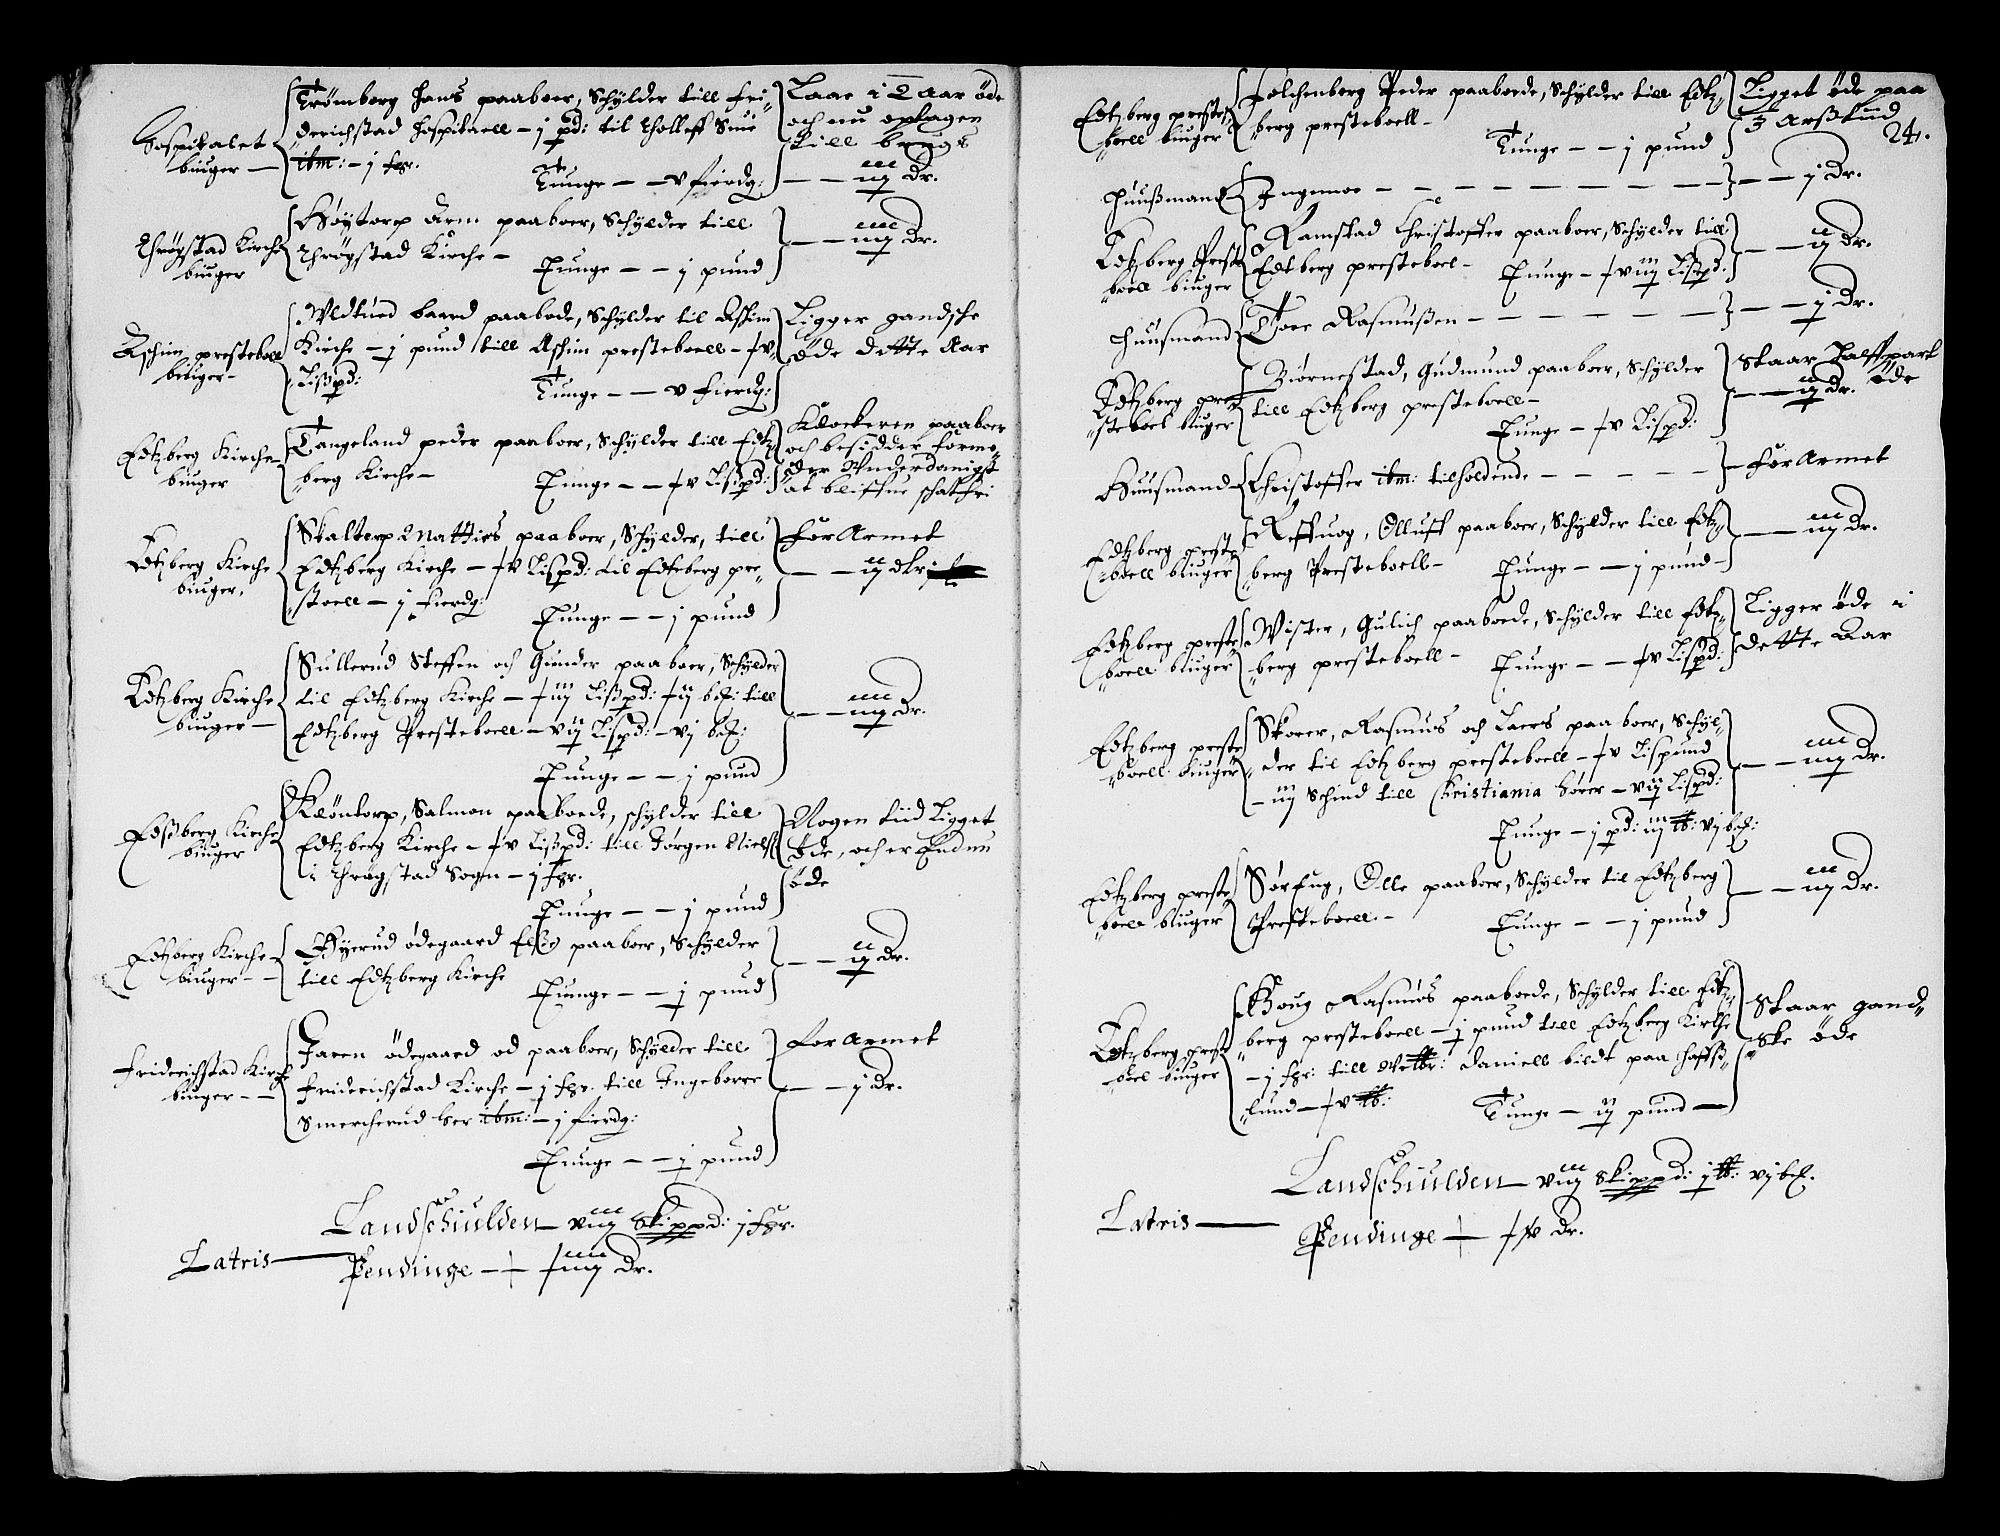 Hospitalet
biuger —
Trømborg Hans paaboer, Schÿlder till Fri-
derichstad Hospitaell — j pd: til Tholleff
ibm: — j
Tunge — — v fierdg:
Laae i 2 Aar øde
och nu optagen
till brugs
— — iiij Dr.
Thrøgstad Kirche
biuger
Høÿtorp Arn paaboer, Schÿlder till
Thrøgstad Kirche —
Tunge — — j pund
— — iiij Dr.
Aschim presteboell
biuger —
baard paabode, Schÿlder til Aschim
Kirche — j pund till Aschim presteboell — xv
Lißpd:
Tunge — — v fierdg:
Ligger gandsche
øde dette Aar
Edtzberg Kirche
biuger
Tangeland peder paaboer, Schÿlder till Edtz-
berg Kirche —
Tunge — — xv Lißpd:
Klockeren paaboer
och besidder formo-
der Underdanigst
at bliffue schatfri
Edtzberg Kirche
biuger,
Skaltorp Matties paaboer, Schÿlder, till
Edtzberg Kirche — xv Lispd: til Edtzberg pre-
stboell — j fierdg:
Tunge — — j pund
For Armet
— — ij dlr
Edtzberg Kirche
biuger —
Sullerud Steffen och Gunder paaboer, Schÿlder
til Edtzberg Kirche — xiij Lißpd: xij bß: till
Edtzberg Presteboell — vij Lispd: — vj bß:
Tunge — — j pund
— — iiij Dr.
Edßberg Kirche
biuger
Kløntorp, Salmon paaboede, schÿlder till
Edtzberg Kirche — xv Lißpd: till Jørgen Nielß
i Thrøgstad Sogn — j
Tunge — — j pund
Nogen tiid Ligget
øde, och er Endnu
øde
Edtzberg Kirche
biuger — —
ødegaard paaboer, Schÿlder
till Edtzberg Kirche
Tunge — — j pund
— — ij Dr.
Friderichstad Kirche
biuger — —
Jaren ødegaard od paaboer, Schÿlder till
Friderichstad Kirche — j till Ingeborre
Smercherud her ibm: — j fierdg:
Tunge — — j pund
For Armet
— — j Dr.
Landschiulden — viij Skippd: j
Latris —
Pendinge — xiiij Dr.
24.
Edtzberg preste-
boell biuger
Folchenberg Peder paaboede, Schÿlder till Edtz-
berg presteboell —
Tunge — — j pund
Ligget øde paa
3 Arß tiid
Huußmand
Ingemoe — — — — — — — —
— — j Dr.
Edtzberg Preste-
boell biuger
Ramstad Christoffer paaboer, Schÿlder till
Edtberg presteboel —
Tunge — xviij Lißpd.
— — ij Dr.
Huusmand
Tore Rasmußen — — — — — —
— — j Dr.
Edtzberg pre-
steboel biuger
Biørnestad, Gudmund paaboer, Schÿlder
till Edtzberg presteboell —
Tunge — xv Lispd:
Staar Halffpart
øde
— — ij Dr.
Huusmand
Christoffer ibm: tilholdende — — — — —
— For Armet
Edtzberg preste-
boell biuger
Reffuog, Olluff paaboer, Schÿlder till Edtz-
berg Presteboell —
Tunge — — j pund —
— — iij Dr.
Edtzberg preste-
boell biuger
Wister, Gulich paaboede, Schÿlder till Edtz-
berg presteboell —
Tunge — — xv Lispd:
Ligger øde i
dette Aar
Edtzberg preste-
boell biuger
Skorer, Rasmus och Laers paaboer, Schÿl-
der til Edtzberg presteboell — xv Lispund
— iij Schind till Christiania — vij Lispd:
Tunge — j pd: iij lb: vj bß:
— — iiij Dr.
Edtzberg preste-
boell biuger
Sørbÿ, Olle paaboer, Schÿlder til Edtzberg
Presteboell —
Tunge — — j pund
— — iij Dr.
Edtzberg preste-
boel biuger
Houg Rasmus paaboede, Schÿlder till Edtz-
berg presteboell — j pund till Edtzberg Kirche
— j till Daniell bildt paa Haffß-
lund — xv lb:
Tunge — ij pund —
Staar gand-
ske øde
Landschiulden — viij Skippd: j lb: vj bß.
Latris —
Pendinge — xv Dr.